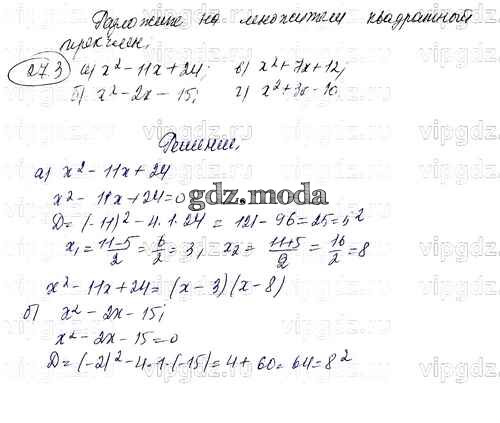 Разложите на множители квадратный
трехчлен;
27.3 а) x² - 11x + 24; в) x² + 7x + 12;
б) x² - 2x - 15; г) x² + 3x - 10.
Решение;
а) x² - 11x + 24
x² - 11x + 24 = 0
gdz.moda
D = (-11)² - 4·1·24 = 121 - 96 = 25 = 5²
x₁ = (11-5)/2 = 6/2 = 3, x₂ = (11+5)/2 = 16/2 = 8
x² - 11x + 24 = (x - 3)(x - 8)
б) x² - 2x - 15;
x² - 2x - 15 = 0
D = (-2)² - 4·1·(-15) = 4 + 60 = 64 = 8²
vipgdz